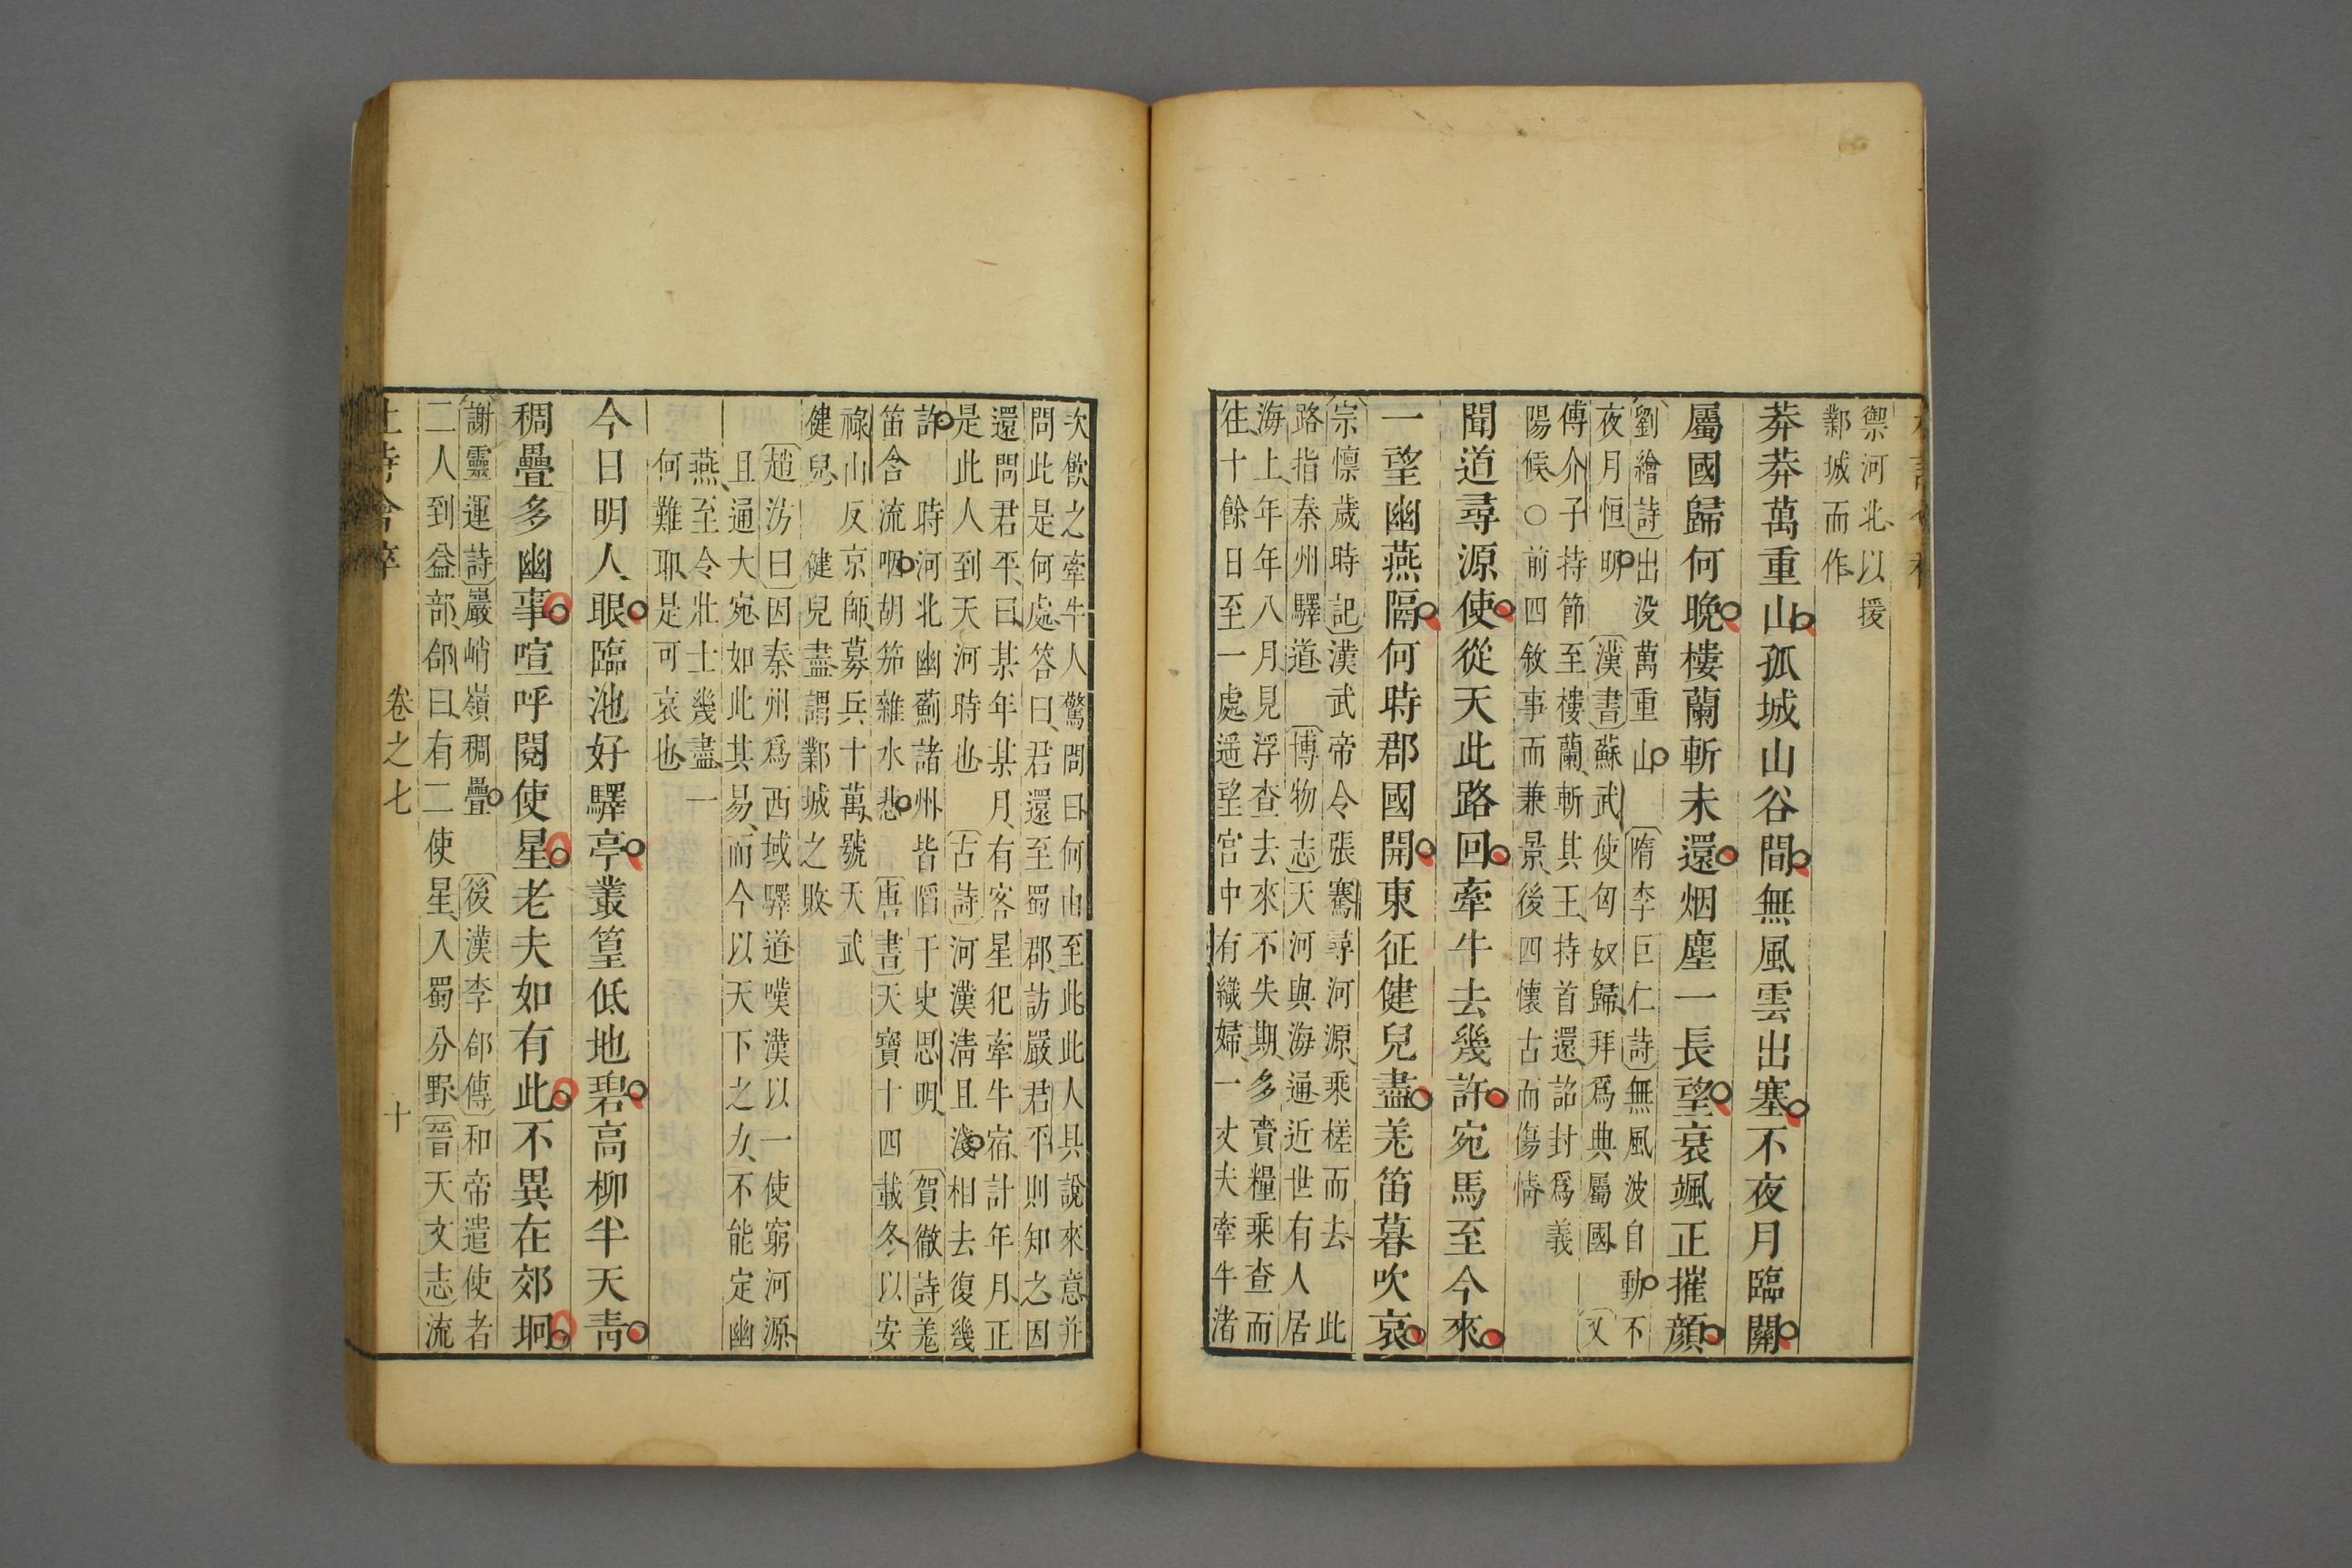 禦河北以援
鄴城而作
莽莽萬重山孤城山谷間無風雲出塞不夜月臨關
屬國歸何晚樓蘭斬未還烟塵一長望衰颯正摧顔
劉繪詩出没萬重山 隋李巨仁詩無風波自動不
夜月恒明 漢書蘇武使匈奴歸拜爲典屬國 又
傅介子持節至樓蘭斬其王持首還詔封爲義
陽候○前四敘事而兼景後四懷古而傷情
聞道尋源使從天此路回牽牛去幾許宛馬至今來
一望幽燕隔何時郡國開東征健兒盡羌笛暮吹哀
宗懍歲時記漢武帝令張騫尋河源乘槎而去 此
路指秦州驛道 博物志天河與海通近世有人居
海上年年八月見浮查去來不失期多賫糧乘查而
往十餘日至一處遥望宫中有織婦一丈夫牽牛渚
次飲之牽牛人驚問曰何由至此此人具說來意并
問此是何處答曰君還至蜀郡訪嚴君平則知之因
還問君平曰某年某月有客星犯牽牛宿計年月正
是此人到天河時也 古詩河漢清且淺相去復幾
許 時河北幽薊諸州皆䧟于史思明 賀徹詩羌
笛含流咽胡笳雜水悲 唐書天寶十四載冬以安
禄山反京師募兵十萬號天武
健兒 健兒盡謂鄴城之敗
趙汸曰因秦州爲西域驛道嘆漢以一使窮河源
且通大宛如此其易而今以天下之力不能定幽
燕至令壯士幾盡一
何難耶是可哀也
今日明人眼臨池好驛亭叢篁低地碧高柳半天靑
稠疊多幽事喧呼閱使星老夫如有此不異在郊坰
謝靈運詩巖峭嶺稠疊 後漢李郃傳和帝遣使者
二人到益部郃曰有二使星入蜀分野晉天文志流
卷之七 十